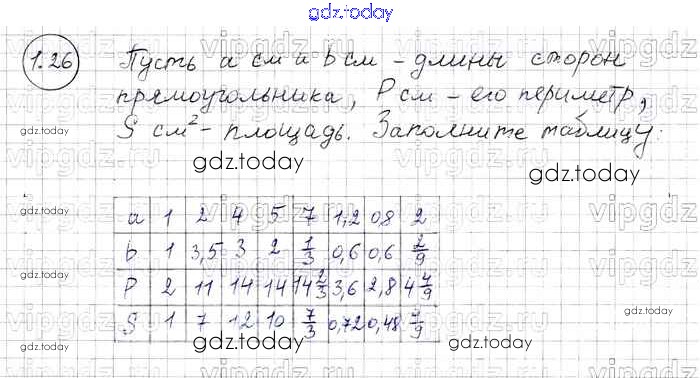 gdz.today
1.26 Пусть a см и b см – длины сторон
прямоугольника, P см – его периметр,
S см² – площадь. Заполните таблицу:
gdz.today
gdz.today
a 1 2 4 5 7 1,2 0,8 2
b 1 3,5 3 2 1/3 0,6 0,6 2/9
P 2 11 14 14 14 2/3 3,6 2,8 4 4/9
S 1 7 12 10 7/3 0,72 0,48 4/9
gdz.today
gdz.today